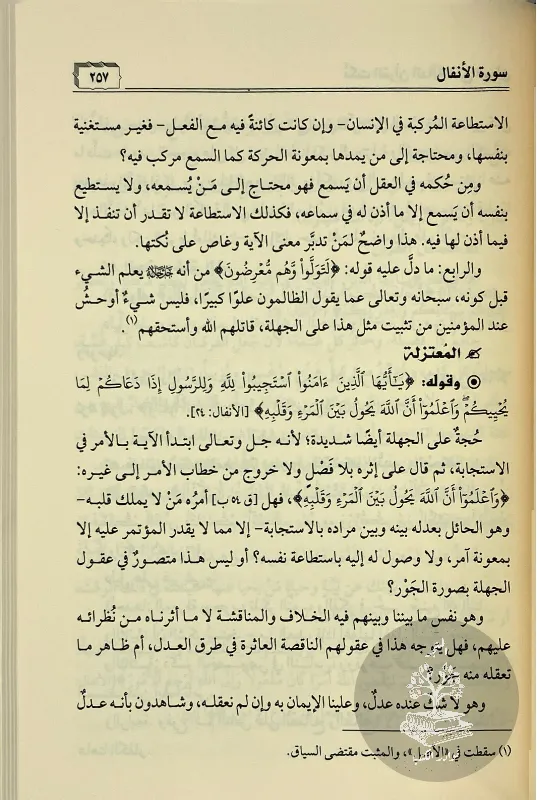 سورة الأنفال
٢٥٧
الاستطاعة المُركبة في الإنسان- وإن كانت كائنةً فيه مع الفعل- فغير مستغنية
بنفسها، ومحتاجة إلى من يمدها بمعونة الحركة كما السمع مركب فيه؟
ومِن حُكمه في العقل أن يَسمع فهو محتاج إلى مَنْ يُسمعه، ولا يستطيع
بنفسه أن يَسمع إلا ما أذن له في سماعه، فكذلك الاستطاعة لا تقدر أن تنفذ إلا
فيما أذن لها فيه. هذا واضحٌ لمَنْ تدبَّر معنى الآية وغاص على نُكتها.
والرابع: ما دلَّ عليه قوله: ﴿لَتَوَلَّواْ وَّهُم مُّعْرِضُونَ﴾ من أنه ﷻ يعلم الشيء
قبل كونه، سبحانه وتعالى عما يقول الظالمون علوًا كبيرًا، فليس شيءٌ أوحشُ
عند المؤمنين من تثبيت مثل هذا على الجهلة، قاتلهم الله وأستحقهم(١).
المُعتزلة
وقوله: ﴿يَٰٓأَيُّهَا ٱلَّذِينَ ءَامَنُواْ ٱسْتَجِيبُواْ لِلَّهِ وَلِلرَّسُولِ إِذَا دَعَاكُمْ لِمَا
يُحْيِيكُمْ ۖ وَٱعْلَمُوٓاْ أَنَّ ٱللَّهَ يَحُولُ بَيْنَ ٱلْمَرْءِ وَقَلْبِهِۦ﴾ [الأنفال: ٢٤].
حُجةٌ على الجهلة أيضًا شديدة؛ لأنه جل وتعالى ابتدأ الآية بالأمر في
الاستجابة، ثم قال على إثره بلا فَصْلٍ ولا خروج من خطاب الأمر إلى غيره:
﴿وَٱعْلَمُوٓاْ أَنَّ ٱللَّهَ يَحُولُ بَيْنَ ٱلْمَرْءِ وَقَلْبِهِۦ﴾، فهل [ق ٥٤ ب] أمرُه مَنْ لا يملك قلبه-
وهو الحائل بعدله بينه وبين مراده بالاستجابة- إلا مما لا يقدر المؤتمر عليه إلا
بمعونة آمر، ولا وصول له إليه باستطاعة نفسه؟ أو ليس هذا متصورٌ في عقول
الجهلة بصورة الجَوْر؟
وهو نفس ما بيننا وبينهم فيه الخلاف والمناقشة لا ما أثرناه من نُظرائه
عليهم، فهل يتوجه هذا في عقولهم الناقصة العاثرة في طرق العدل، أم ظاهر ما
تعقله منه جَوْر؟
وهو لا شكَّ عنده عدلٌ، وعلينا الإيمان به وإن لم نعقله، وشاهدون بأنه عدلٌ
(١) سقطت في «الأصل»، والمثبت مقتضى السياق.